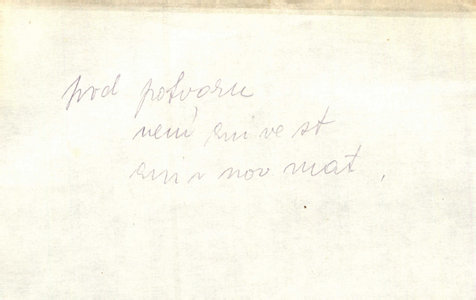 pod potvoru
není ani ve st
ani v nov mat.